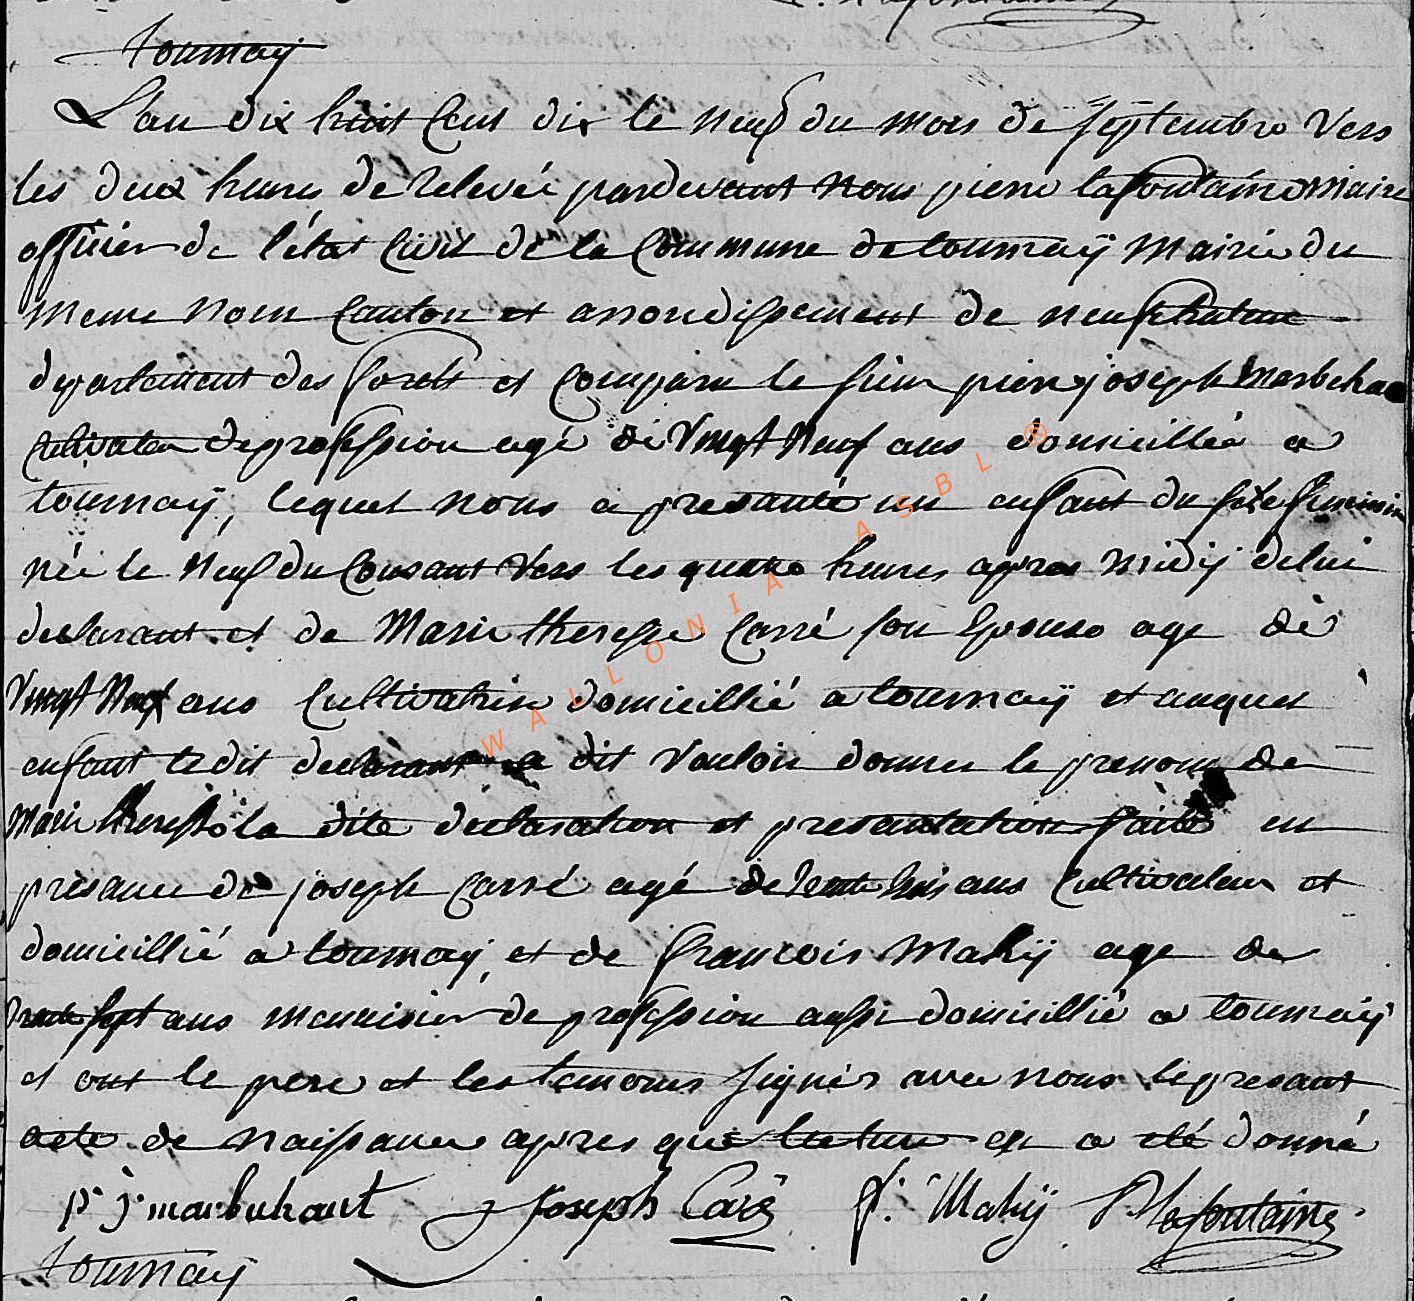 tournaÿ
L'an dix huit Cent dix le neuf du mois de septembre vers
les deux heures de relevée pardevant nous pierre lafontaine Maire
officier de l'état Civil de la Commune de tournaÿ Mairie du
meme nom Canton et arrondissement de neufchateau
departement des forets est comparu le sieur pierre joseph Marbehan
cultivateur de profession agé de Vingt Neuf ans domicillié a
tournaÿ, lequel nous a presanté un enfant du sexe feminin
née le Neuf du Courant vers les quatre heures apres midÿ de lui
declarant et de Marie theresse Carré son Epouse age de
Vingt Neuf ans Cultivatrise domicillié a tournaÿ et auquel
enfant le dit declarant a dit vouloir donner le prenom de
Marie theresse la dite declaration et presantation faite en
presance de joseph Carré agé de trente trois ans Cultivateur et
domicillié a tournaÿ, et de francois Mahÿ age de
trente sept ans menuisier de profession aussi domicillié a tournaÿ
et ont le pere et les temoins signés avec nous le presant
acte de naissance apres que lecture en a eté donné
p. j. marbehant Joseph Caré f. Mahÿ P lafontaine
tournaÿ
WALLONIA ASBL ®